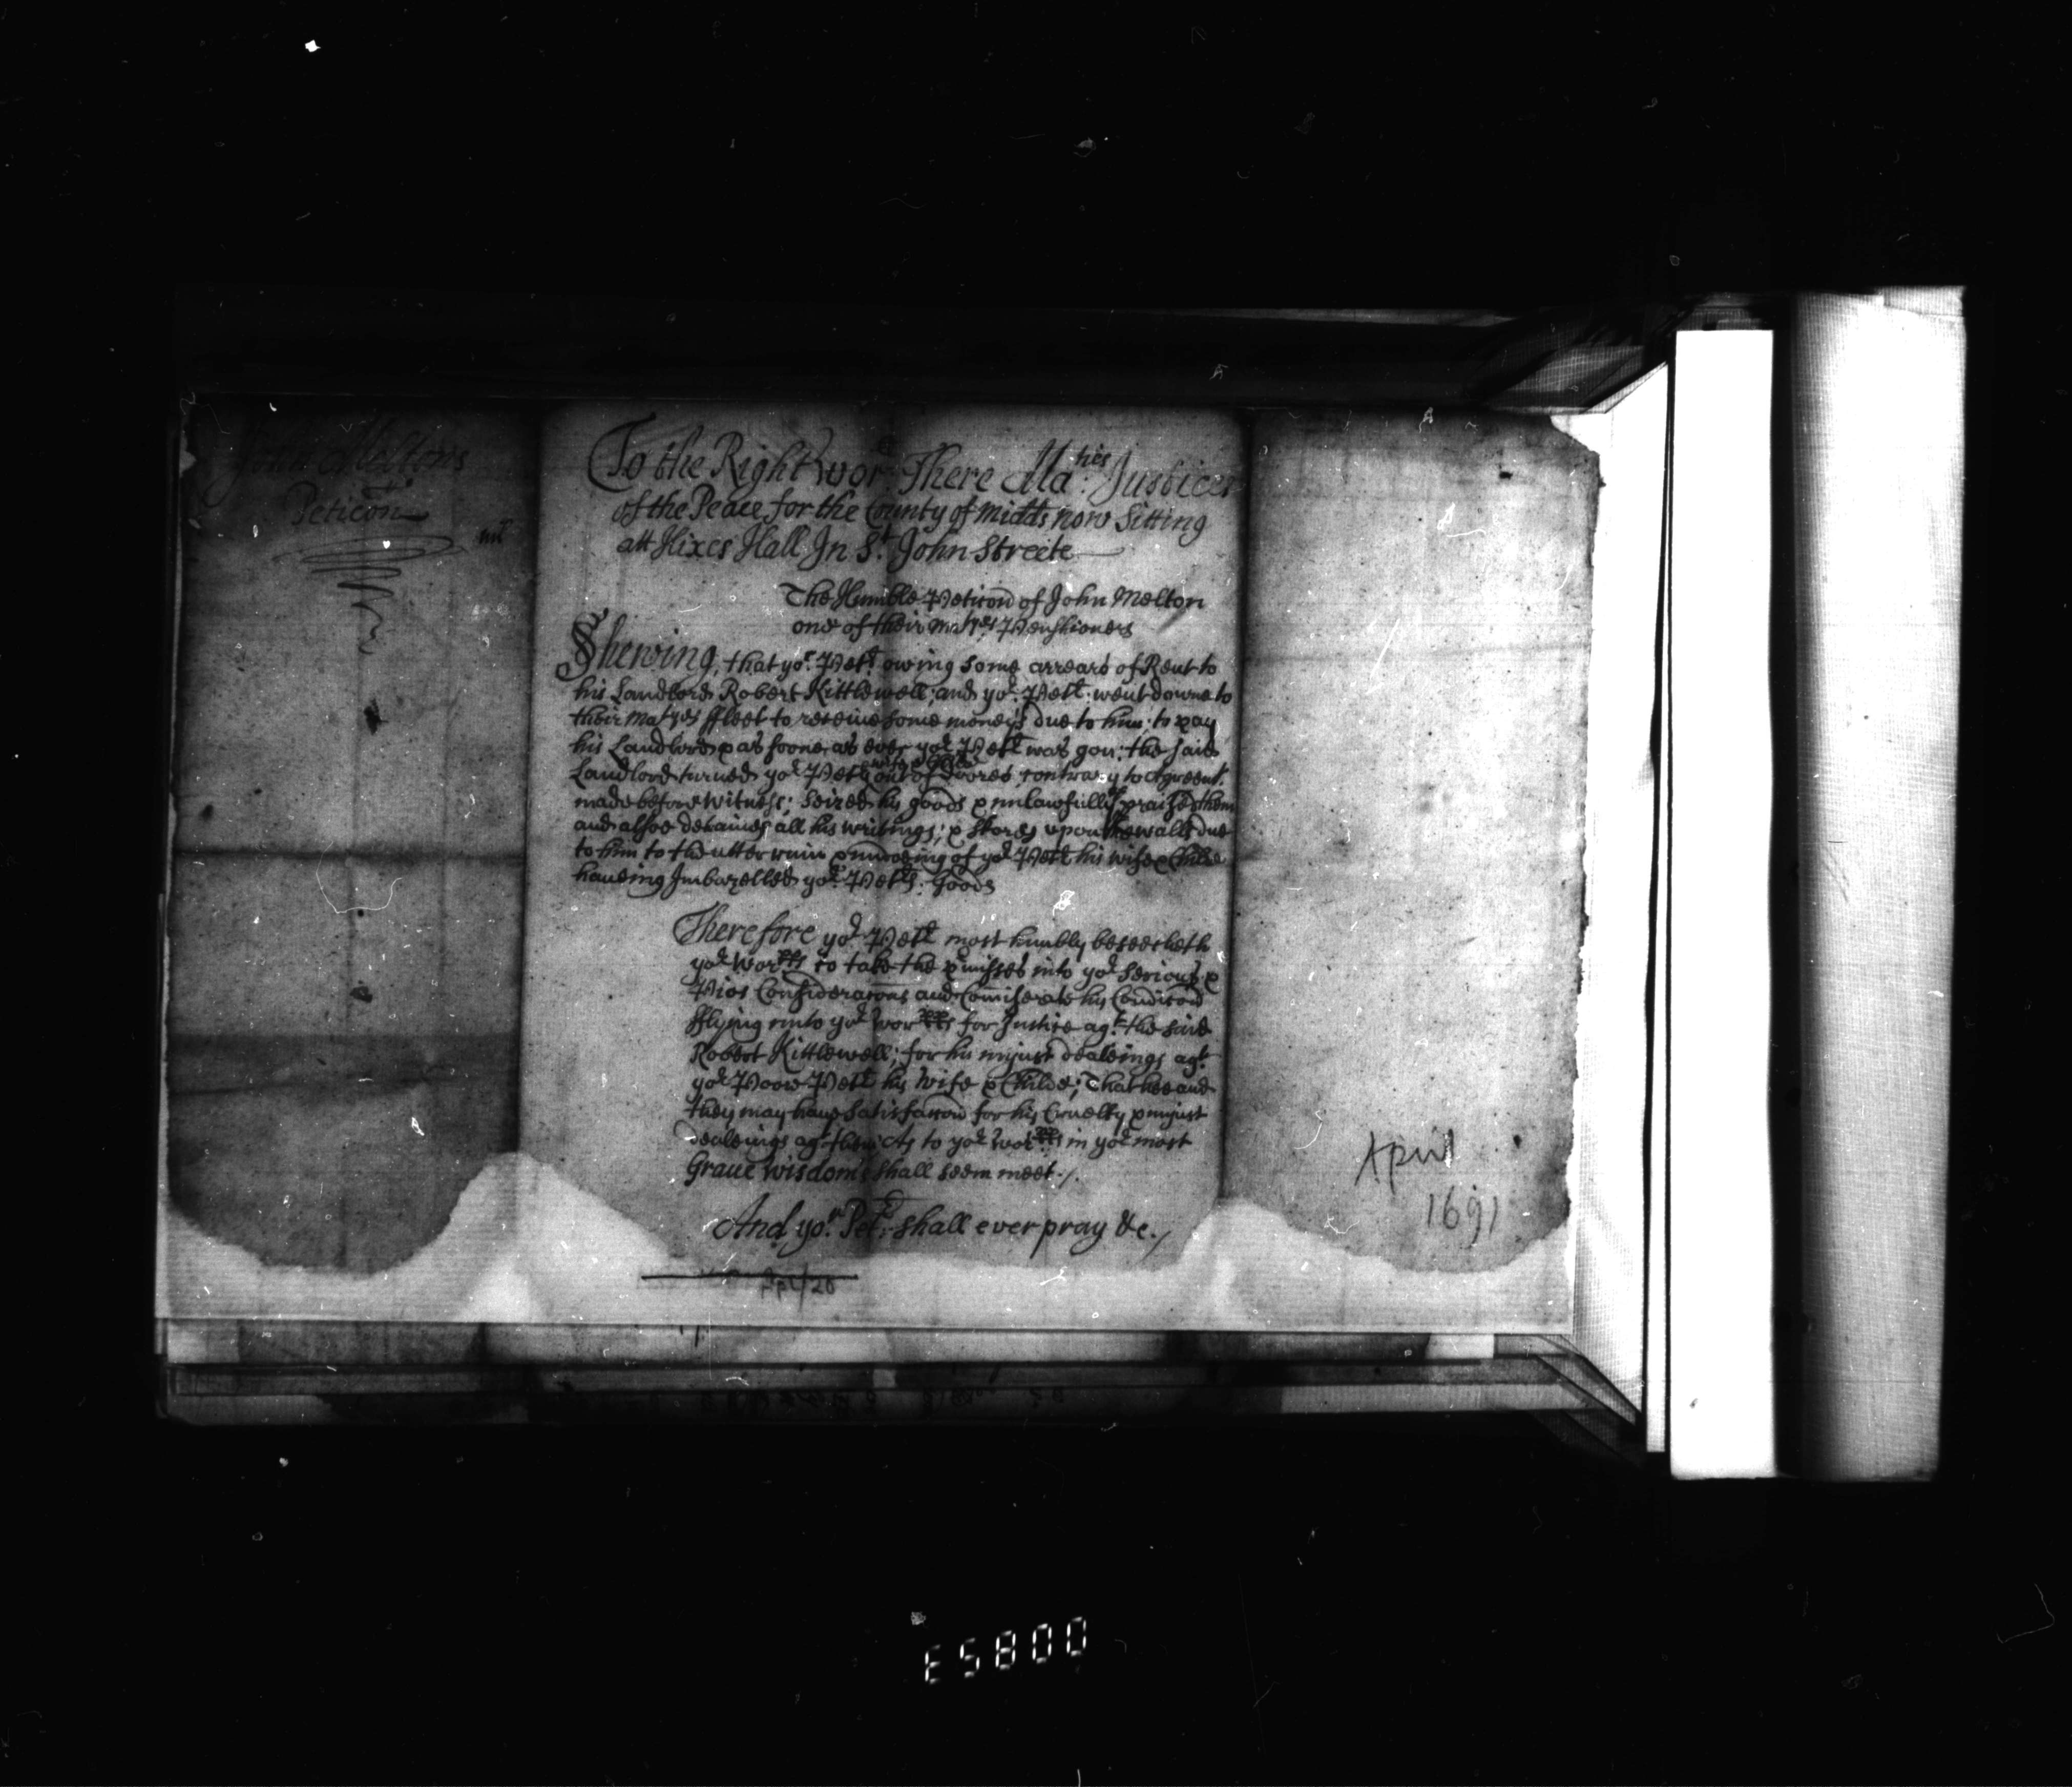 John Meltons
Peticon
To the Right Wor: There Ma:ties Justices
of the Peace for the County of Midds now Sitting
att Hixes Hall In St. John Streete
The Humble Peticon of John Melton
one of their Matyes Penshioners
Shewing, that yor. Petr. owing some arrears of Rent to
his Landlord Robert Kittlewell; and yor. Petr. went downe to
their Matyes ffleet to receive some moneys due to him; to pay
his Landlord & as soone as ever yor Petr was gon: the said
Landlord turned yor Petrs wife & Childe out of doores contrary to Agreemt.
made before Witness; Seized his goods & unlawfully praised them
and alsoe detaines all his writings; & Scores upon the walls due
to him to the utter ruin & undoeing of yor Petr his wife & Childe
haveing Imbazelled yor. Petrs: Goods
Therefore yor Petr most humbly beseecheth
yor Worpps to take the pmisses into yor Serious &
Pios Consideracons and Comiserate his Condicon
fflying unto yor Worpps for Justice agt. the said
Robert Kittlewell; for his unjust dealeings agt.
yor Poore Petr his Wife & Childe; That hee and
they may have Satisfaccon for his Cruelty & unjust
dealeings agt. them As to yor Worpps in yor most
Grave Wisdome shall seem meet ./.
And yor. Petr. shall ever pray &c./
April
1691
E5800